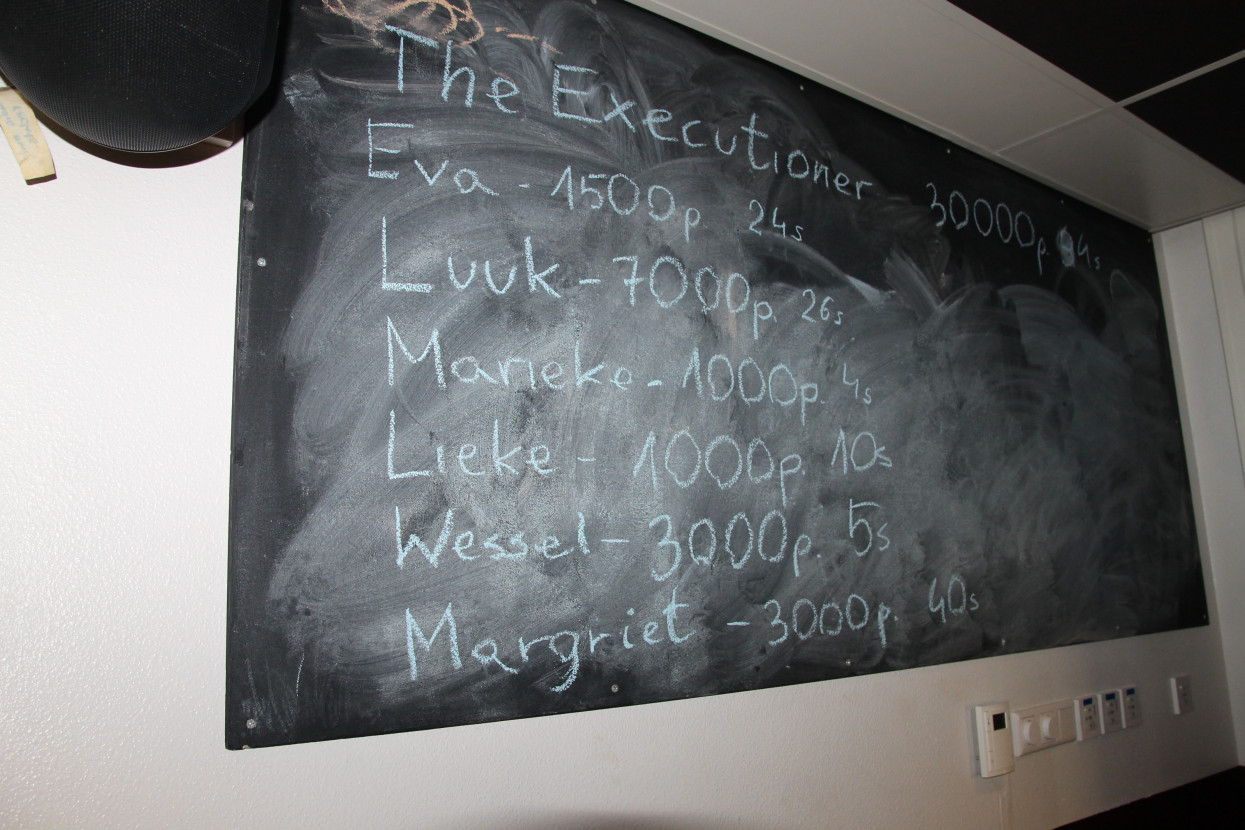 The Executioner 30000p. 4s
Eva - 1500p 24s
Luuk - 7000p. 26s
Marieke - 1000p. 4s
Lieke - 1000p. 10s
Wessel - 3000p. 5s
Margriet - 3000p. 40s